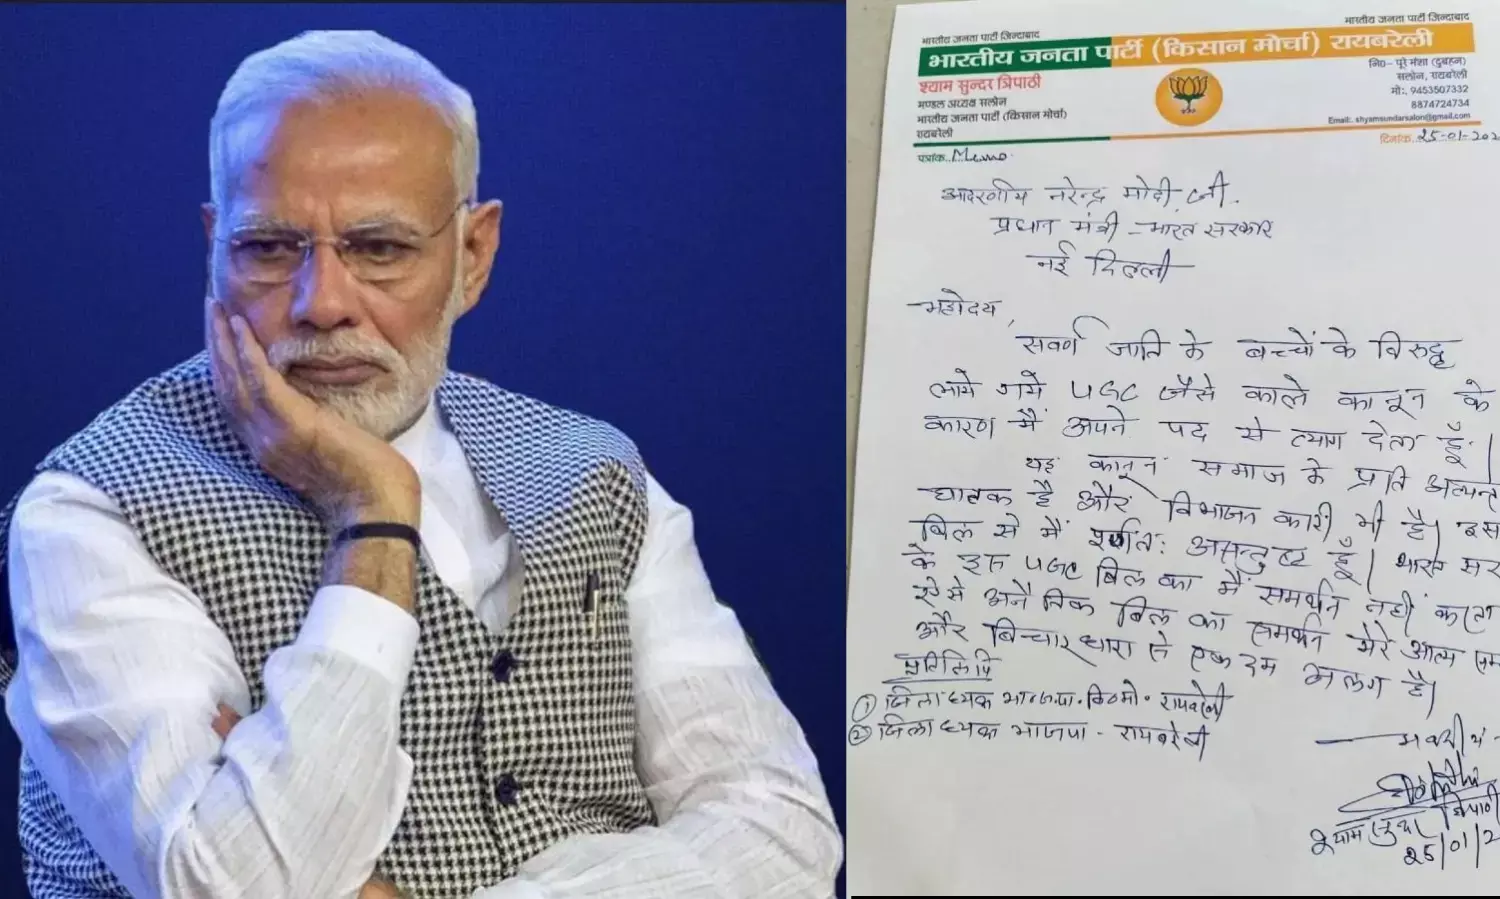 भारतीय जनता पार्टी जिन्दाबाद
भारतीय जनता पार्टी जिन्दाबाद
भारतीय जनता पार्टी (किसान मोर्चा) रायबरेली
श्याम सुन्दर त्रिपाठी
मण्डल अध्यक्ष सलोन
भारतीय जनता पार्टी (किसान मोर्चा)
रायबरेली
नि0- पूरे मंशा (दुबहन)
सलोन, रायबरेली
मो:. 9453507332
8874724734
Email:. shyamsundarsalon@gmail.com
दिनांक. 25-01-202
पत्रांक.. Memo.
आदरणीय नरेन्द्र मोदी जी.
प्रधान मंत्री - भारत सरकार
नई दिल्ली
महोदय,
सवर्ण जाति के बच्चों के विरुद्ध
लाये गये UGC जैसे काले कानून के
कारण मैं अपने पद से त्याग देता हूँ।
यह कानून समाज के प्रति अत्यन्त
घातक है और विभाजन कारी भी है। इस
बिल से मैं असन्तुष्ट हूँ। भारत सर
के इस UGC बिल का मैं समर्थन नहीं करता
ऐसे अनैतिक बिल का समर्थन मेरे आत्म सम
और विचार धारा से एक दम अलग है।
प्रतिलिपि
① जिलाध्यक्ष भाजपा. कि०मो. रायबरेली
② जिलाध्यक्ष भाजपा - रायबरेली
श्याम सुन्दर त्रिपाठी
25/01/2